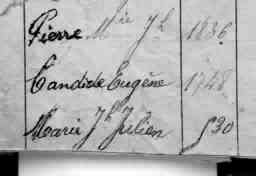 Pierre Mie Jh 1836
Candide Eugène 1748
Marie Jh Julien 530